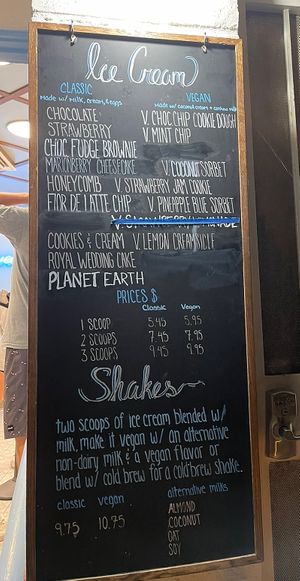 Ice Cream
CLASSIC VEGAN
Made w/ milk, cream, & eggs Made w/ coconut cream + cashew milk
CHOCOLATE V. CHOC CHIP COOKIE DOUGH
STRAWBERRY V. MINT CHIP
CHOC FUDGE BROWNIE
MARIONBERRY CHEESECAKE V. COCONUT SORBET
HONEYCOMB V. STRAWBERRY JAM COOKIE
FIOR DE LATTE CHIP V. PINEAPPLE BLUE SORBET
COOKIES & CREAM V. LEMON CREAMSICLE
ROYAL WEDDING CAKE
PLANET EARTH
PRICES $
Classic Vegan
1 SCOOP 5.45 5.95
2 SCOOPS 7.45 7.95
3 SCOOPS 9.45 9.95
Shakes
two scoops of ice cream blended w/
milk, make it vegan w/ an alternative
non-dairy milk & a vegan flavor or
blend w/ cold brew for a coldbrew shake.
classic vegan alternative milks
9.75 10.75 ALMOND
COCONUT
OAT
SOY